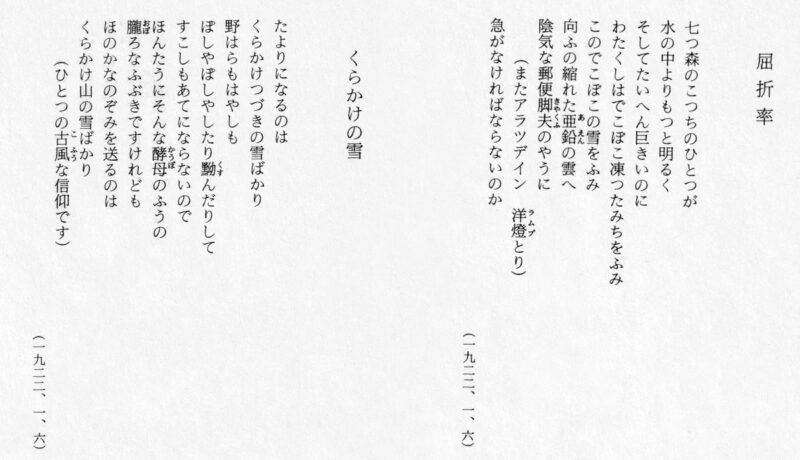 屈折率
七つ森のこつちのひとつが
水の中よりもつと明るく
そしてたいへん巨きいのに
わたくしはでこぼこ凍つたみちをふみ
このでこぼこの雪をふみ
向ふの縮れた亜鉛の雲へ
陰気な郵便脚夫のやうに
(またアラツデイン 洋燈とり)
急がなければならないのか
(一九二二、一、六)
くらかけの雪
たよりになるのは
くらかけつづきの雪ばかり
野はらもはやしも
ぽしやぽしやしたり黝んだりして
すこしもあてにならないので
ほんたうにそんな酵母のふうの
朧ろなふぶきですけれども
ほのかなのぞみを送るのは
くらかけ山の雪ばかり
(ひとつの古風な信仰です)
(一九二二、一、六)